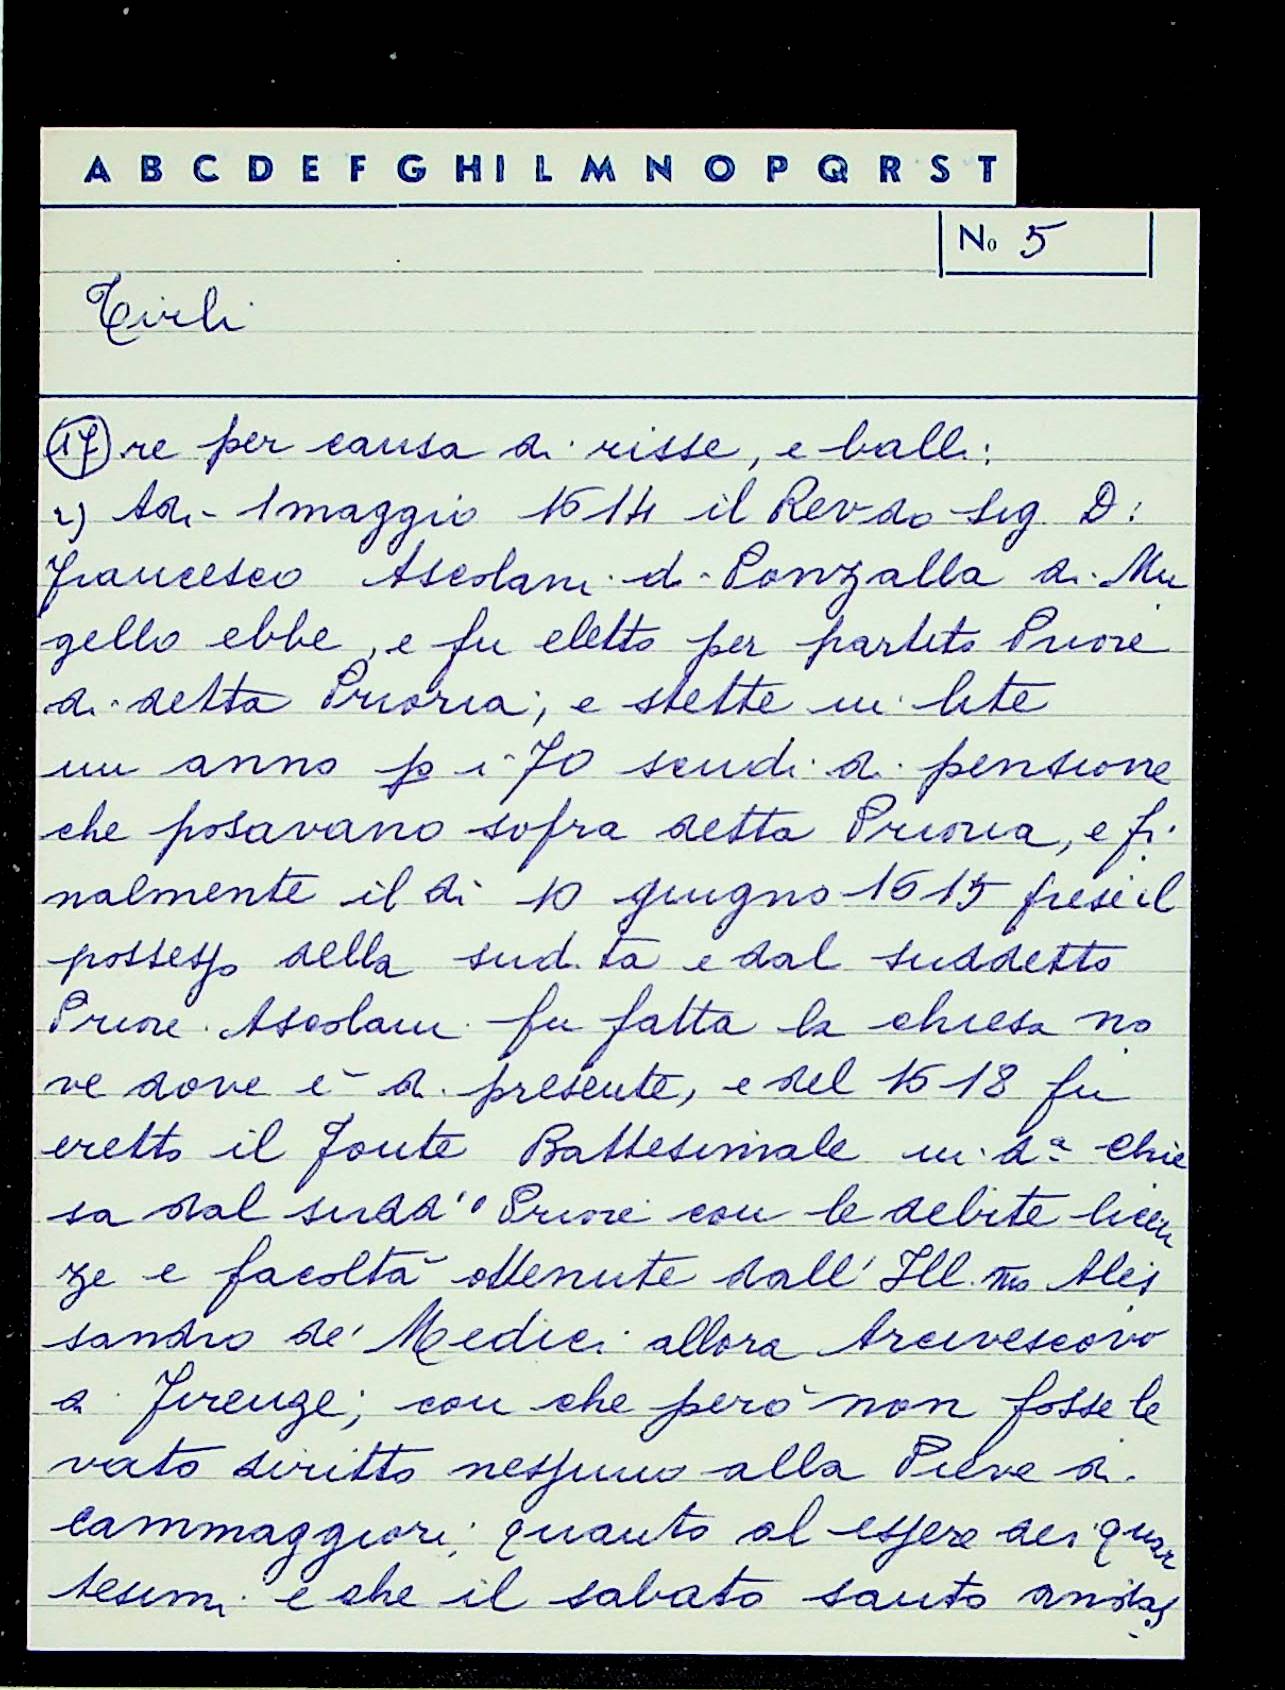 A B C D E F G H I L M N O P Q R S T
No 5
Tirli
17 re per causa di risse, e balli:
2) Adi 1 maggio 1614 il Revdo Sig. D:
Francesco Ascolani di Ponzalla di Mu
gello ebbe, e fu eletto per partito Priore
di detta Prioria; e stette in lite
un anno p i 70 scudi di pensione
che posavano sopra detta Prioria, e fi
nalmente il dì 10 giugno 1615 prese il
possesso della sud.ta e dal suddetto
Priore Ascolani fu fatta la chiesa no
ve dove è di presente, e del 1618 fu
eretto il Fonte Battesimale in d.a Chie
sa dal sudd.o Priore con le debite licen
ze e facoltà ottenute dall' Ill.mo Ales
sandro de' Medici allora Arcivescovo
di Firenze; con che però non fosse le
vato diritto nessuno alla Pieve di
Cammaggiori; quanto al essere dei quar
tesimi e che il sabato santo